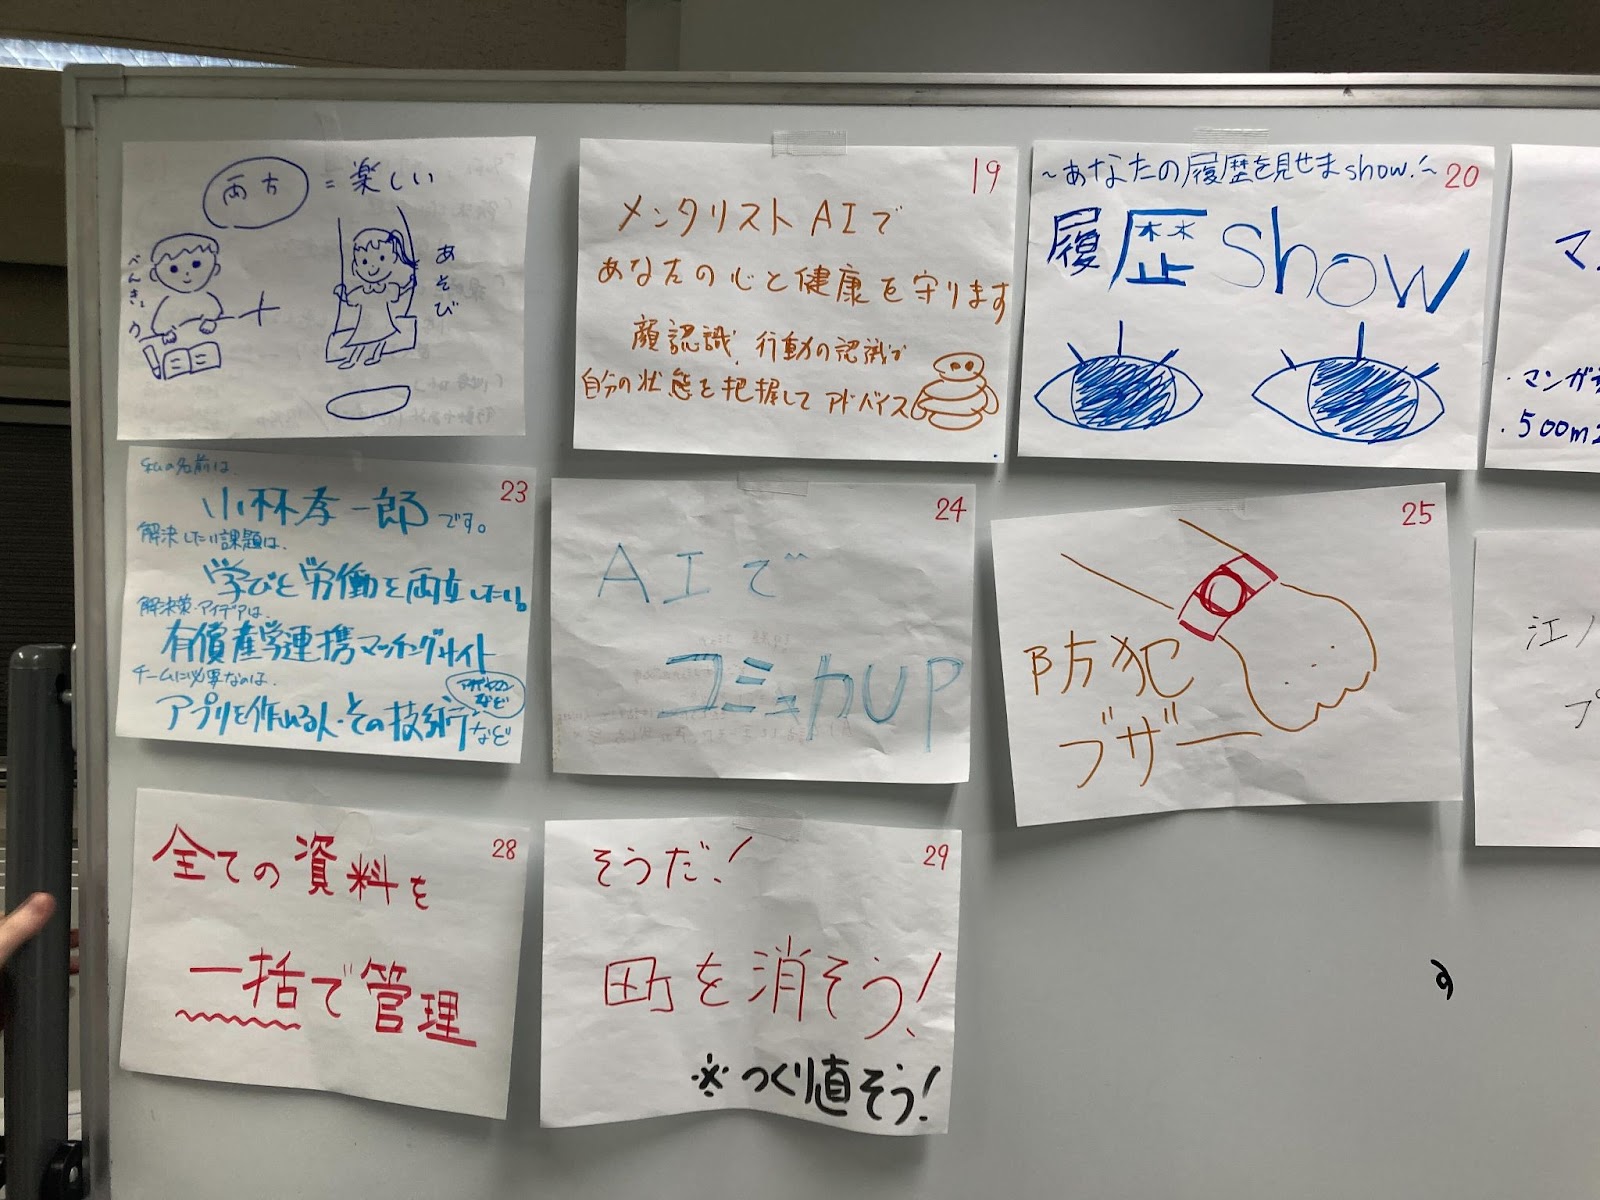 両方 = 楽しい
べんきょう
+
あそび
19
メンタリストAIで
あなたの心と健康を守ります
顔認識、行動の認識が
自分の状態を把握してアドバイス
20
~あなたの履歴を見せまshow!~
履歴show
マン
・マンガ
・500m
23
私の名前は、
小林孝一郎です。
解決したい課題は、
学びと労働を両立したい。
解決策・アイデアは、
有償産学連携マッチングサイト
チームに必要なのは、
アプリを作れる人・その技術 など
など
24
AIで
コミュ力UP
25
防犯
ブザー
江ノ
プ
28
全ての資料を
一括で管理
29
そうだ!
町を消そう!
※つくり直そう!
す